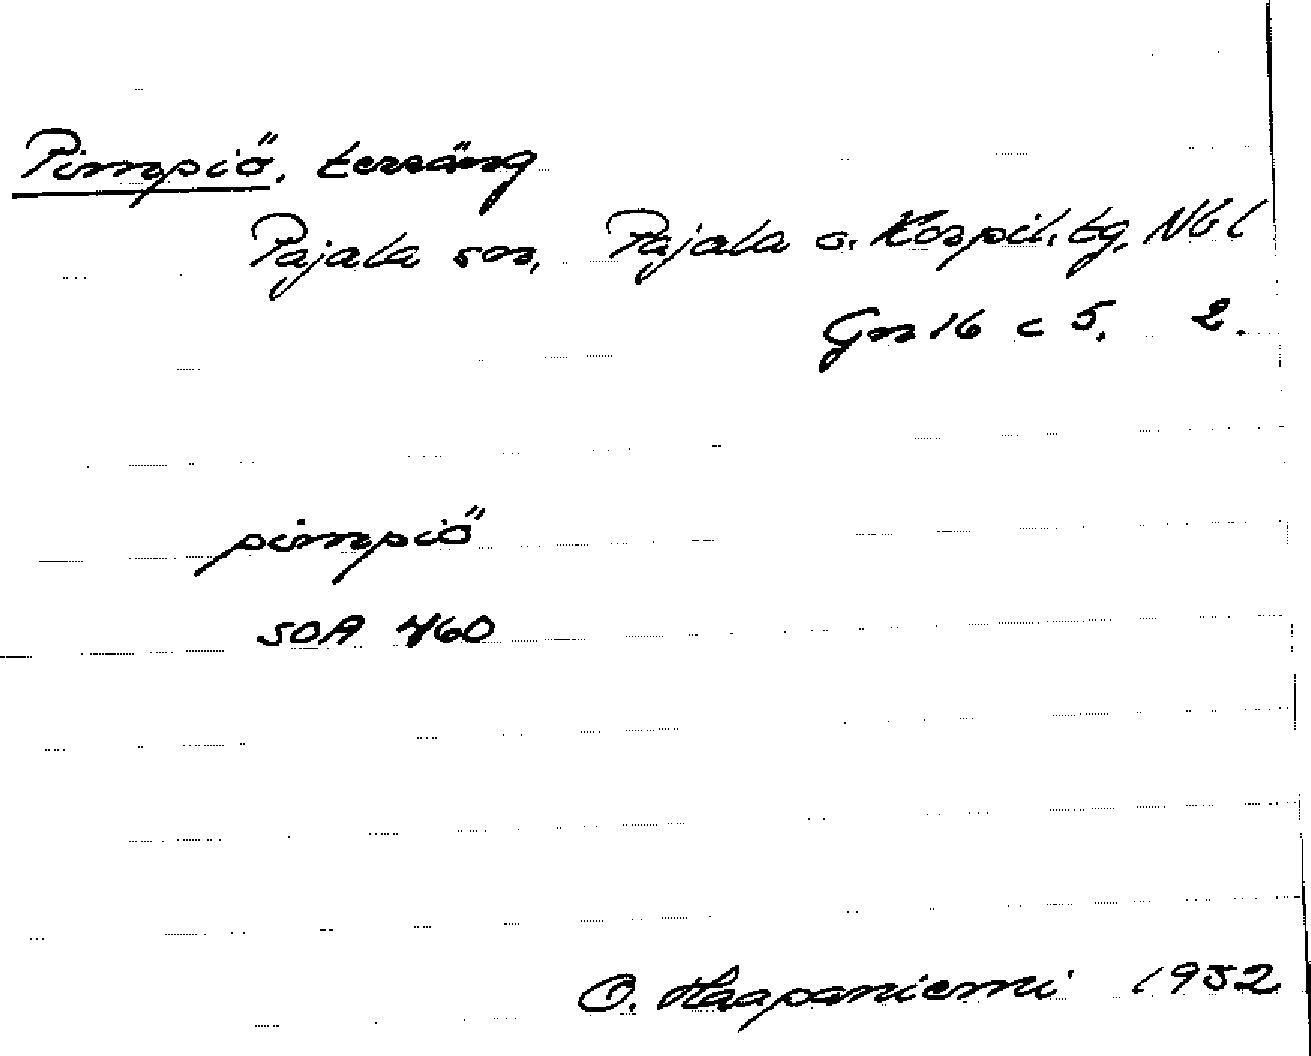 Pimpiö, terräng
Pajala sn, Pajala o. Korpil. tg, Nbl
Gn 16 c 5. 2.
pimpiö
SOA 460
O. Haapaniemi 1952